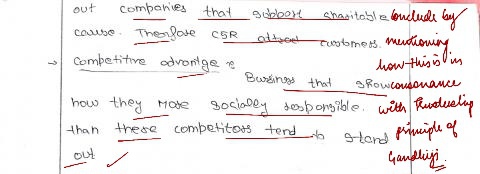 out companies that support charitable conclude by
cause. Therefore CSR attract customers. mentioning
→ Competitive advantge : how this is in
Business that show consonance
how they more socially responsible. with Trusteeship
than these competitors tend to stand principle of
out ✓ Gandhiji.